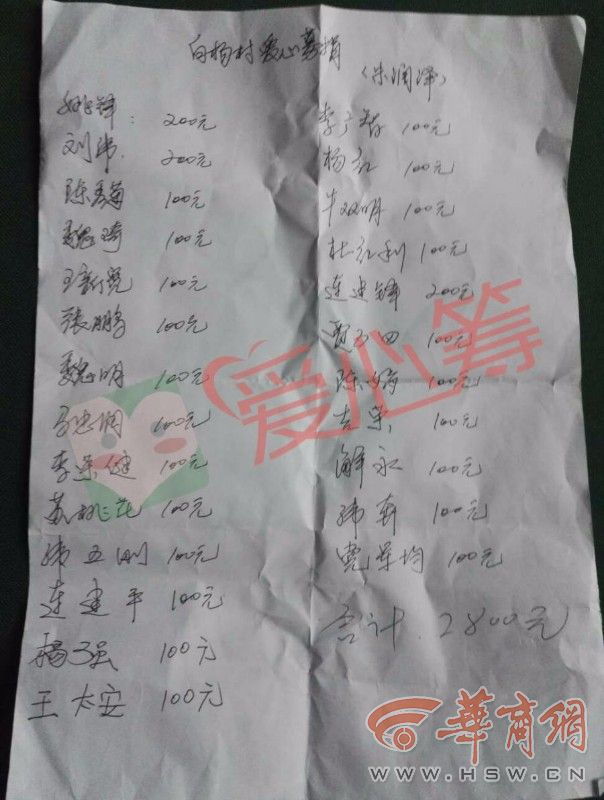 白杨村爱心募捐
(朱润泽)
姚锋: 200元
刘伟 200元
陈秀菊 100元
魏琦 100元
王新宽 100元
张鹏 100元
魏明 100元
100元
李荣健 100元
苏桃花 100元
韩五刚 100元
连建平 100元
杨子强 100元
王太安 100元
李广智 100元
杨红 100元
牛双明 100元
杜红利 100元
连建锋 200元
100元
陈娟 100元
吉荣 100元
解永 100元
韩莉 100元
党荣均 100元
合计 2800元
爱心筹
華商網
WWW.HSW.CN